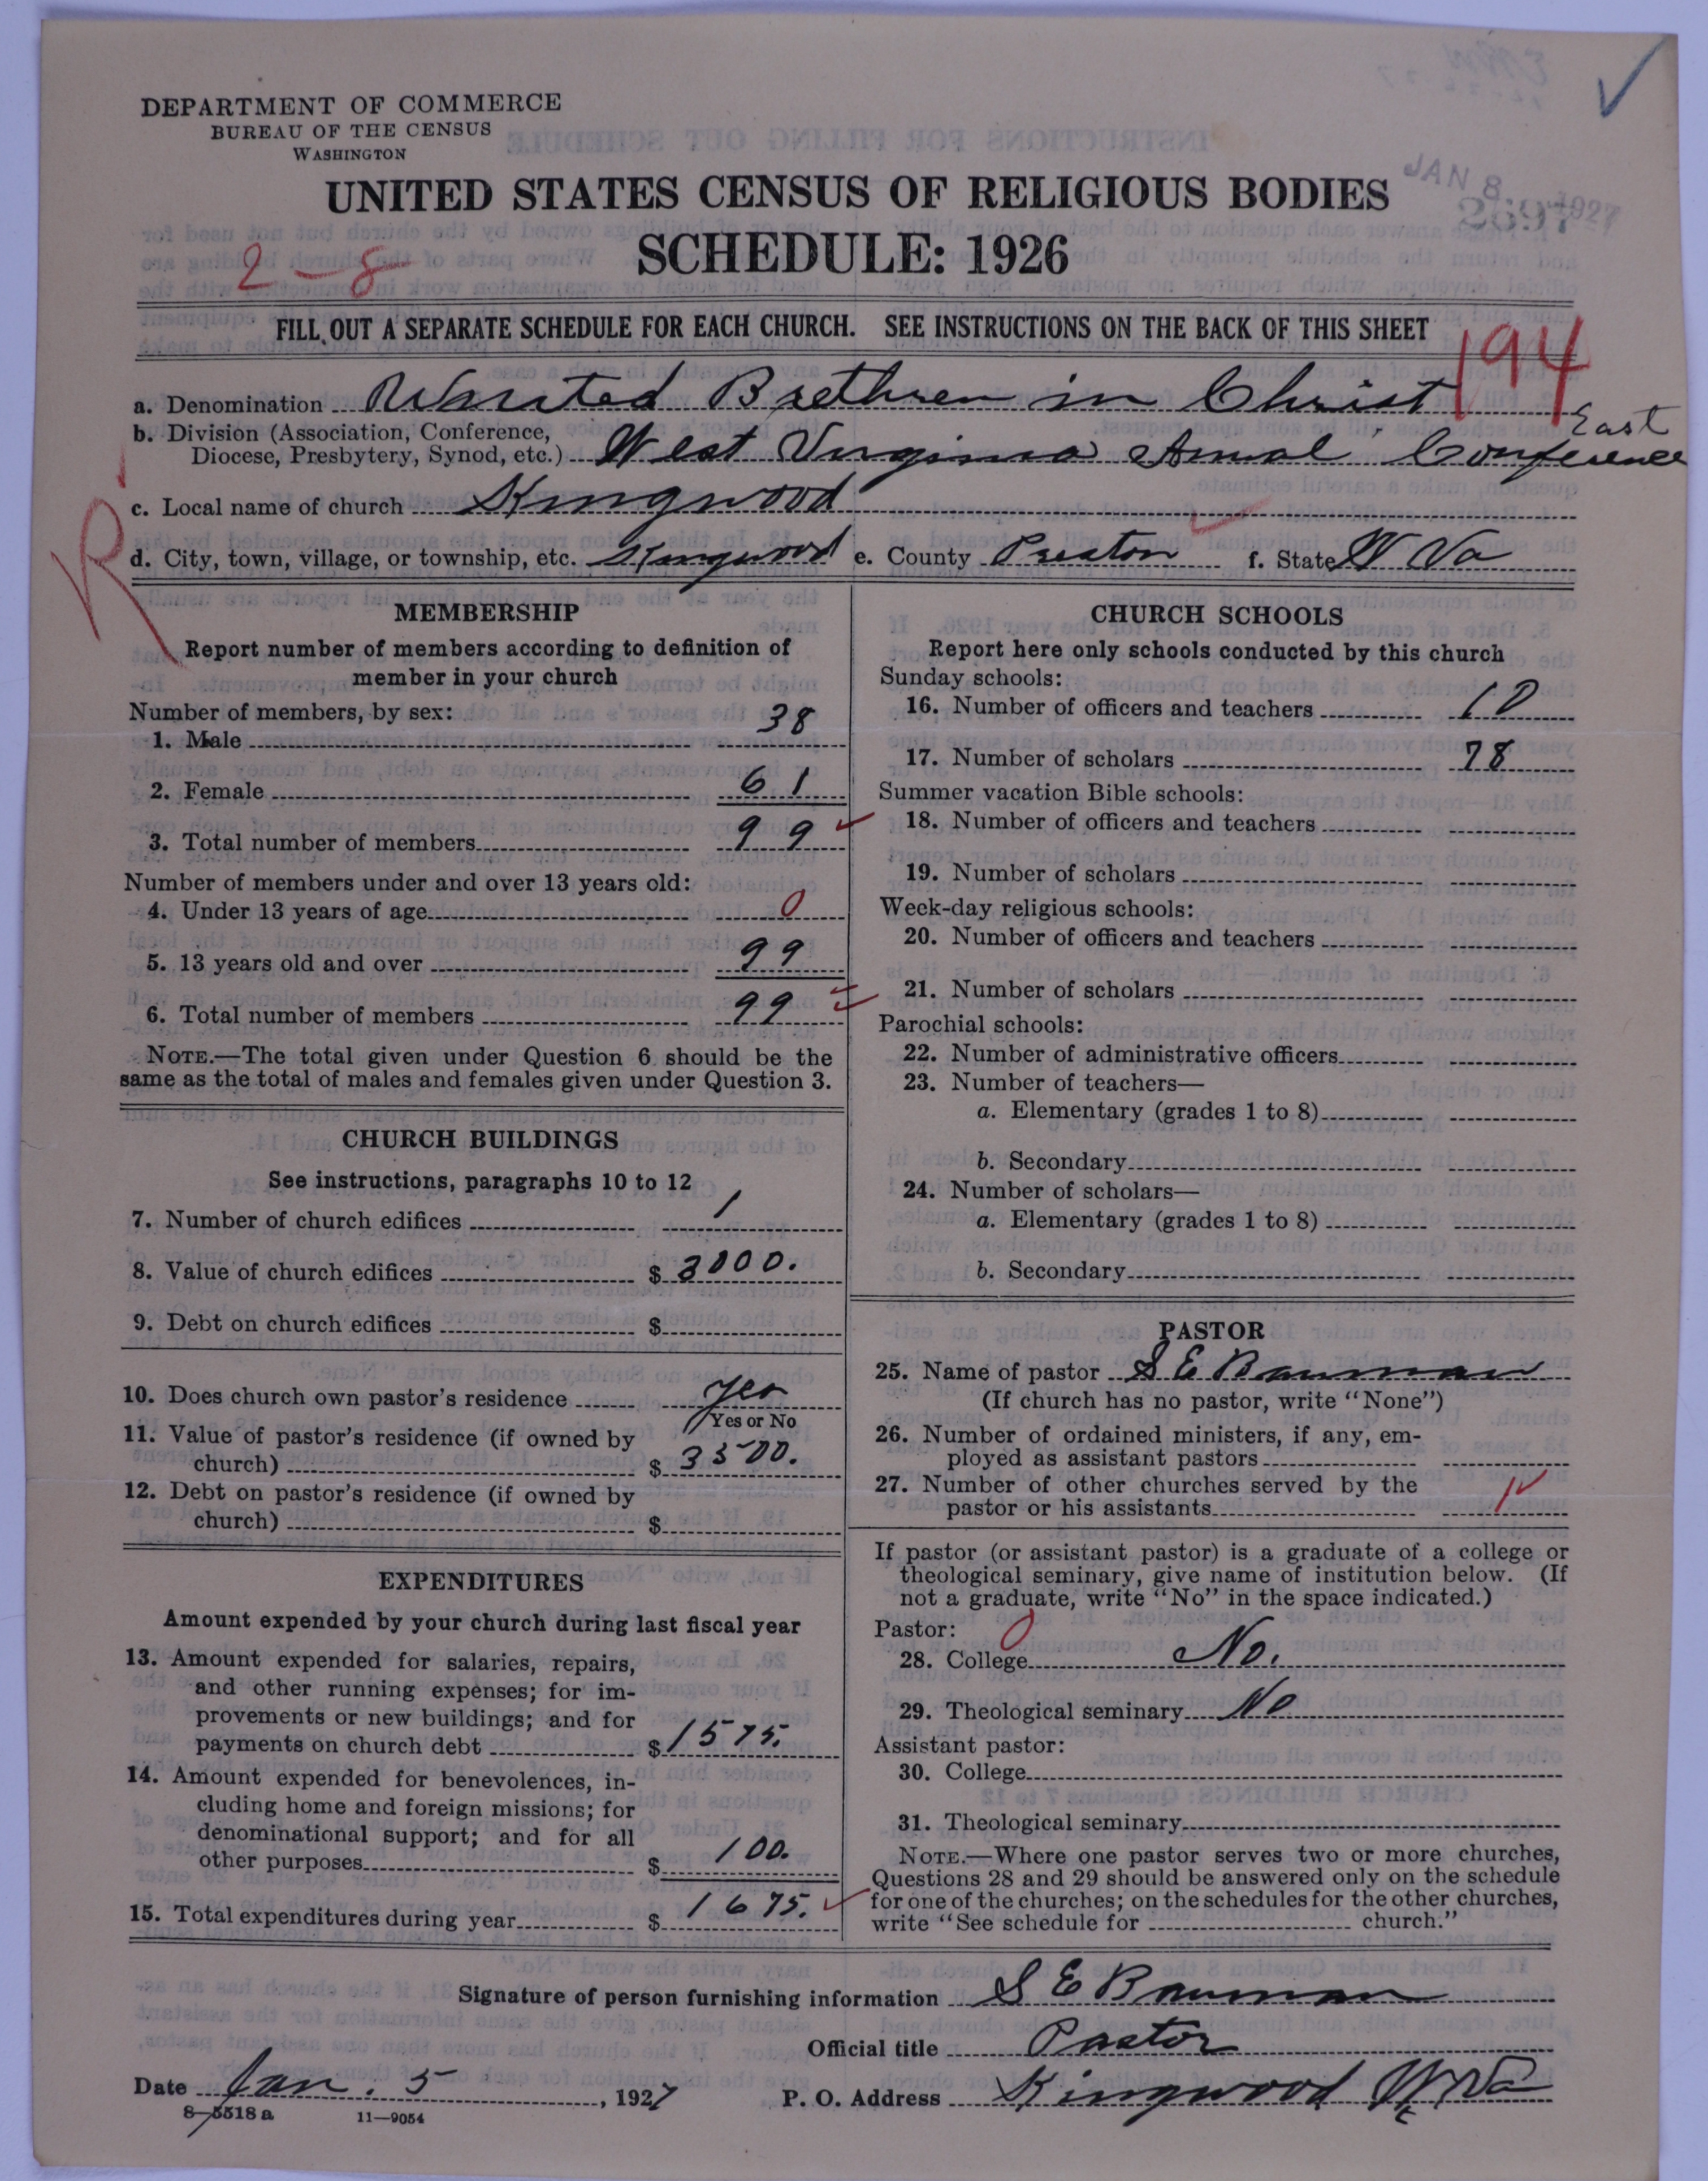 DEPARTMENT OF COMMERCE
BUREAU OF THE CENSUS
WASHINGTON
UNITED STATES CENSUS OF RELIGIOUS BODIES
JAN 8 1927
SCHEDULE: 1926
2-8
FILL OUT A SEPARATE SCHEDULE FOR EACH CHURCH. SEE INSTRUCTIONS ON THE BACK OF THIS SHEET
194
a. Denomination Brethren in Christ
b. Division (Association, Conference,
Diocese, Presbytery, Synod, etc.) West Virginia Conference East
c. Local name of church Kingwood
d. City, town, village, or township, etc. Kingwood e. County Preston f. State W Va
R
MEMBERSHIP
Report number of members according to definition of
member in your church
Number of members, by sex:
1. Male 38
2. Female 61
3. Total number of members 99
Number of members under and over 13 years old:
4. Under 13 years of age 0
5. 13 years old and over 99
6. Total number of members 99
NOTE.—The total given under Question 6 should be the
same as the total of males and females given under Question 3.
CHURCH BUILDINGS
See instructions, paragraphs 10 to 12
7. Number of church edifices 1
8. Value of church edifices $ 3000.
9. Debt on church edifices $
10. Does church own pastor's residence Yes
Yes or No
11. Value of pastor's residence (if owned by
church) $ 3500.
12. Debt on pastor's residence (if owned by
church) $
EXPENDITURES
Amount expended by your church during last fiscal year
13. Amount expended for salaries, repairs,
and other running expenses; for im-
provements or new buildings; and for
payments on church debt $ 1575.
14. Amount expended for benevolences, in-
cluding home and foreign missions; for
denominational support; and for all
other purposes $ 100.
15. Total expenditures during year $ 1675.
CHURCH SCHOOLS
Report here only schools conducted by this church
Sunday schools:
16. Number of officers and teachers 10
17. Number of scholars 78
Summer vacation Bible schools:
18. Number of officers and teachers
19. Number of scholars
Week-day religious schools:
20. Number of officers and teachers
21. Number of scholars
Parochial schools:
22. Number of administrative officers
23. Number of teachers—
a. Elementary (grades 1 to 8)
b. Secondary
24. Number of scholars—
a. Elementary (grades 1 to 8)
b. Secondary
PASTOR
25. Name of pastor S E Bauman
(If church has no pastor, write "None")
26. Number of ordained ministers, if any, em-
ployed as assistant pastors
27. Number of other churches served by the
pastor or his assistants
If pastor (or assistant pastor) is a graduate of a college or
theological seminary, give name of institution below. (If
not a graduate, write "No" in the space indicated.)
Pastor: 0
28. College No.
29. Theological seminary No
Assistant pastor:
30. College
31. Theological seminary
NOTE.—Where one pastor serves two or more churches,
Questions 28 and 29 should be answered only on the schedule
for one of the churches; on the schedules for the other churches,
write "See schedule for church."
Signature of person furnishing information S E Bauman
Official title Pastor
Date Jan. 5, 1927 P. O. Address Kingwood W Va
8—5518 a 11—9054